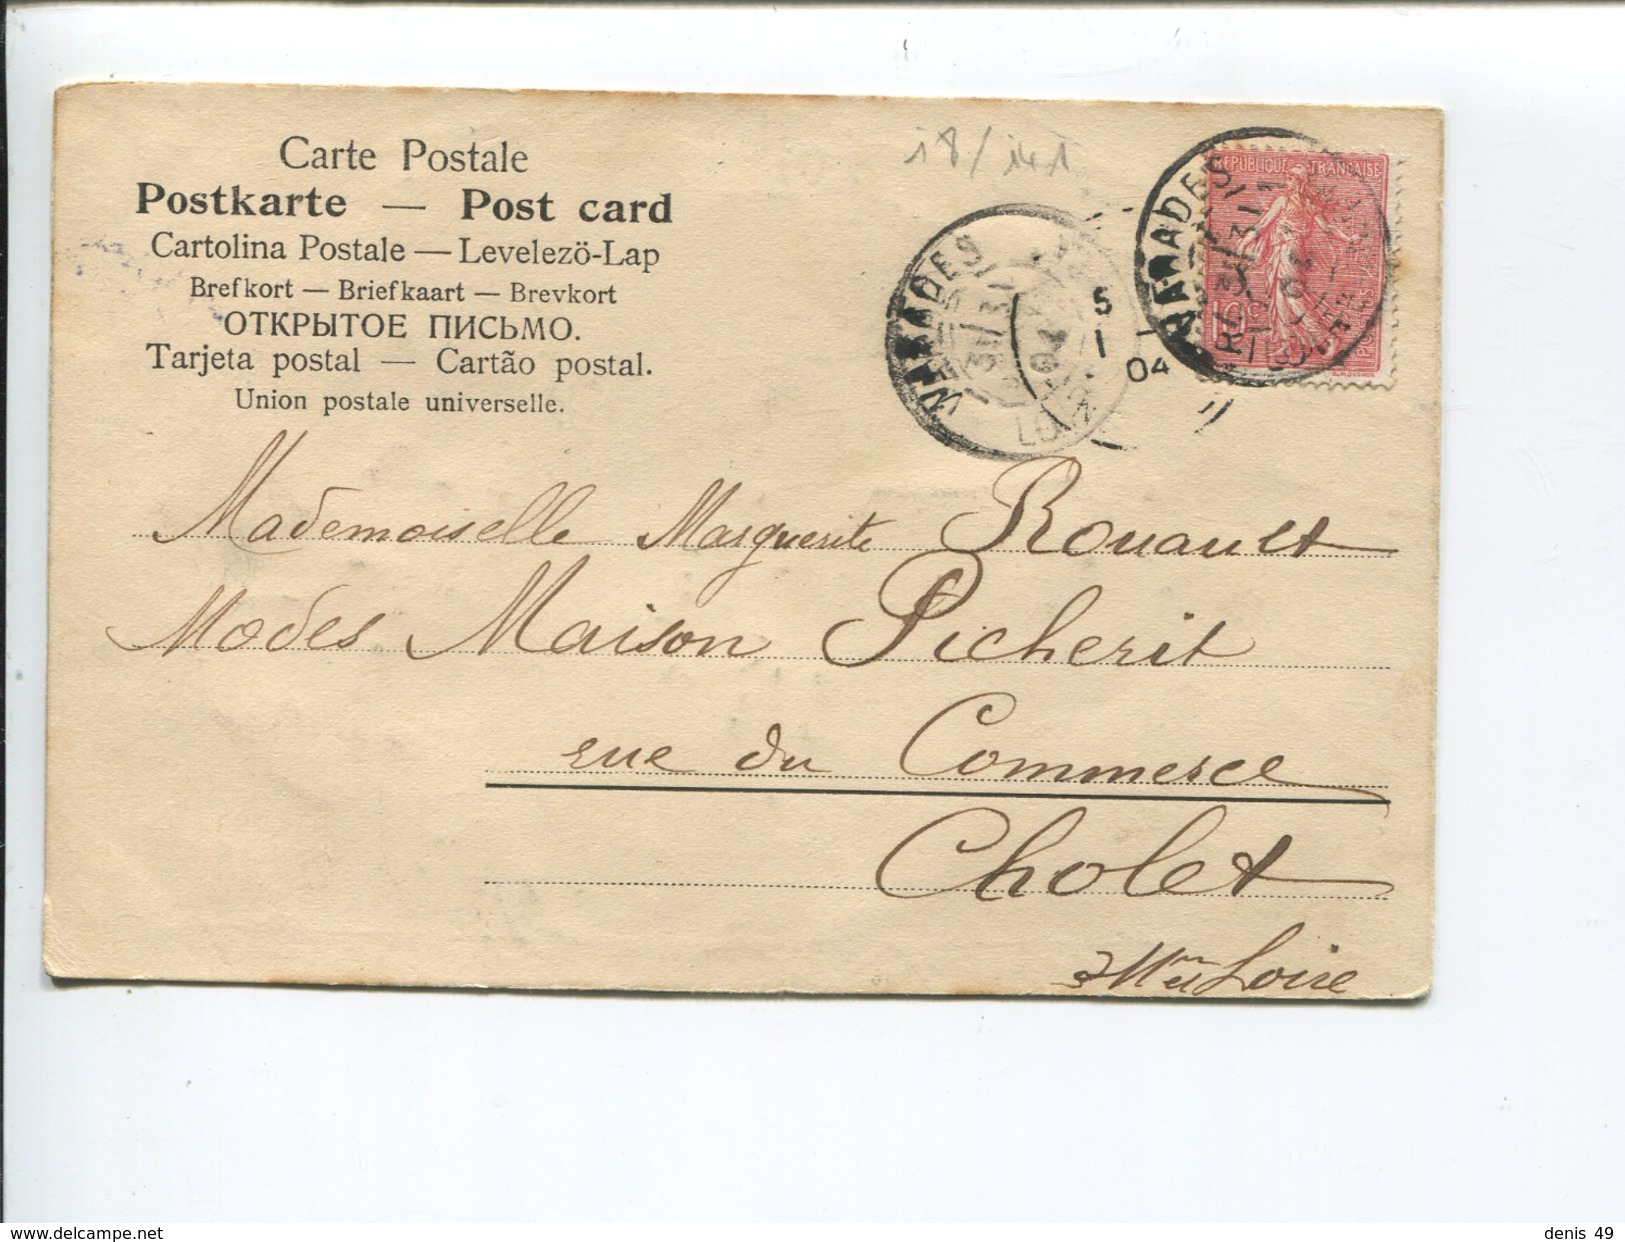 Carte Postale
Postkarte — Post card
Cartolina Postale — Levelezö-Lap
Brefkort — Briefkaart — Brevkort
ОТКРЫТОЕ ПИСЬМО.
Tarjeta postal — Cartão postal.
Union postale universelle.
18/141
REPUBLIQUE FRANÇAISE
10 c
POSTES
VARADES
31
04
LOIRE
5
1
04
VARADES
31
Mademoiselle Marguerite Rouault
Modes Maison Picherit
rue du Commerce
Cholet
Mne et Loire
www.delcampe.net
denis 49